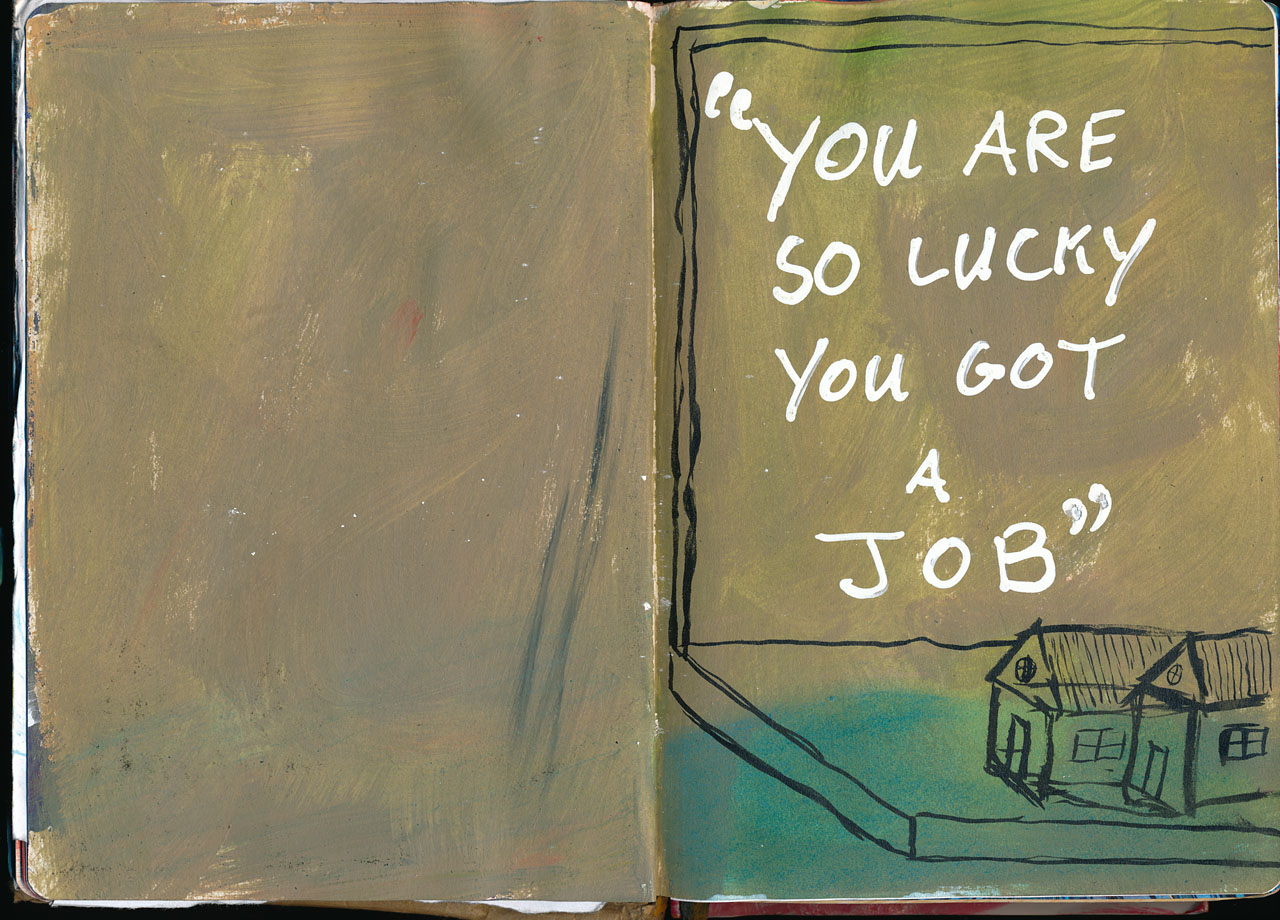 “YOU ARE
SO LUCKY
YOU GOT
A
JOB”